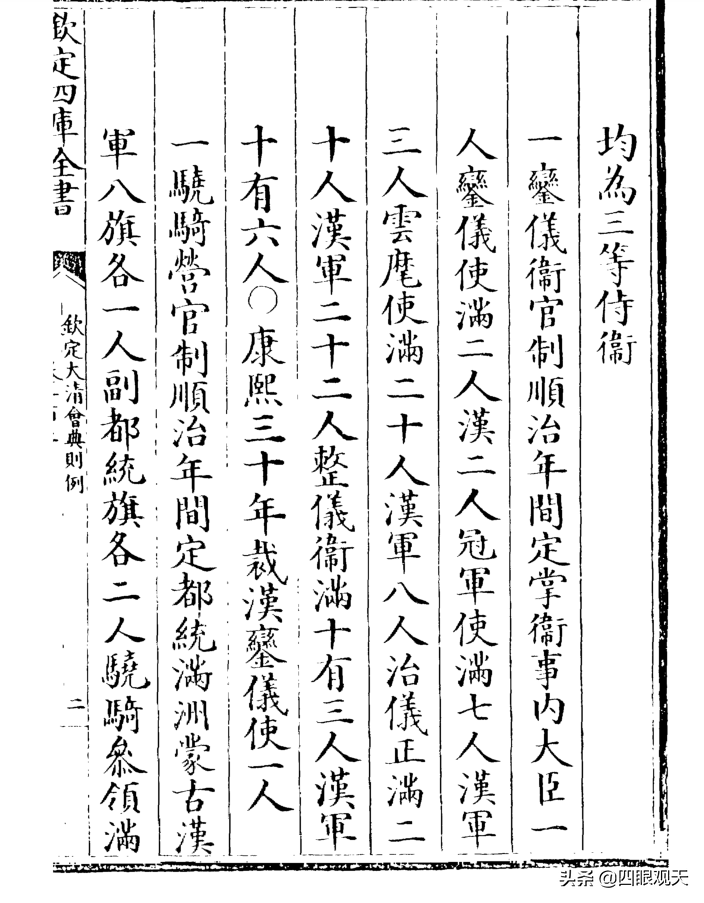 均為三等侍衞
一鑾儀衞官制順治年間定掌衞事内大臣一
人鑾儀使滿二人漢二人冠軍使滿七人漢軍
三人雲麾使滿二十人漢軍八人治儀正滿二
十人漢軍二十二人整儀衞滿十有三人漢軍
十有六人〇康熙三十年裁漢鑾儀使一人
一驍騎營官制順治年間定都統滿洲蒙古漢
軍八旗各一人副都統旗各二人驍騎叅領滿
欽定四庫全書
欽定大清會典則例
二
头条 @四眼观天